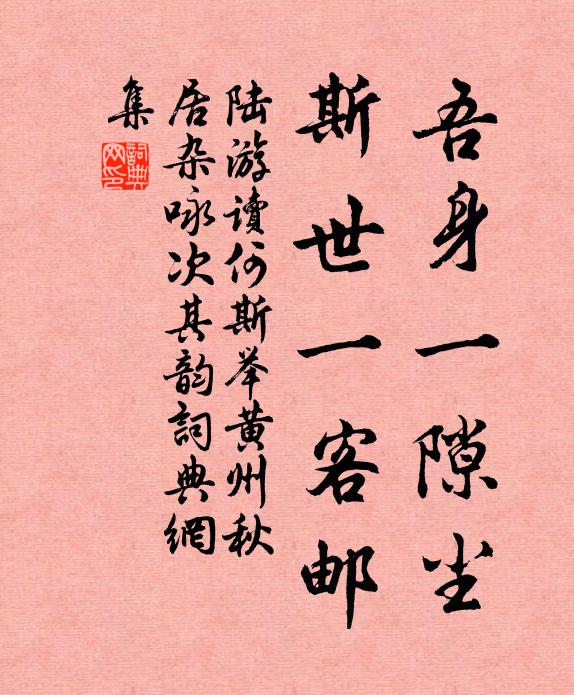 吾身一隙尘
斯世一客邮
陆游讀何斯举黄州秋
居杂咏次其韵詞典網
集
詞典網印